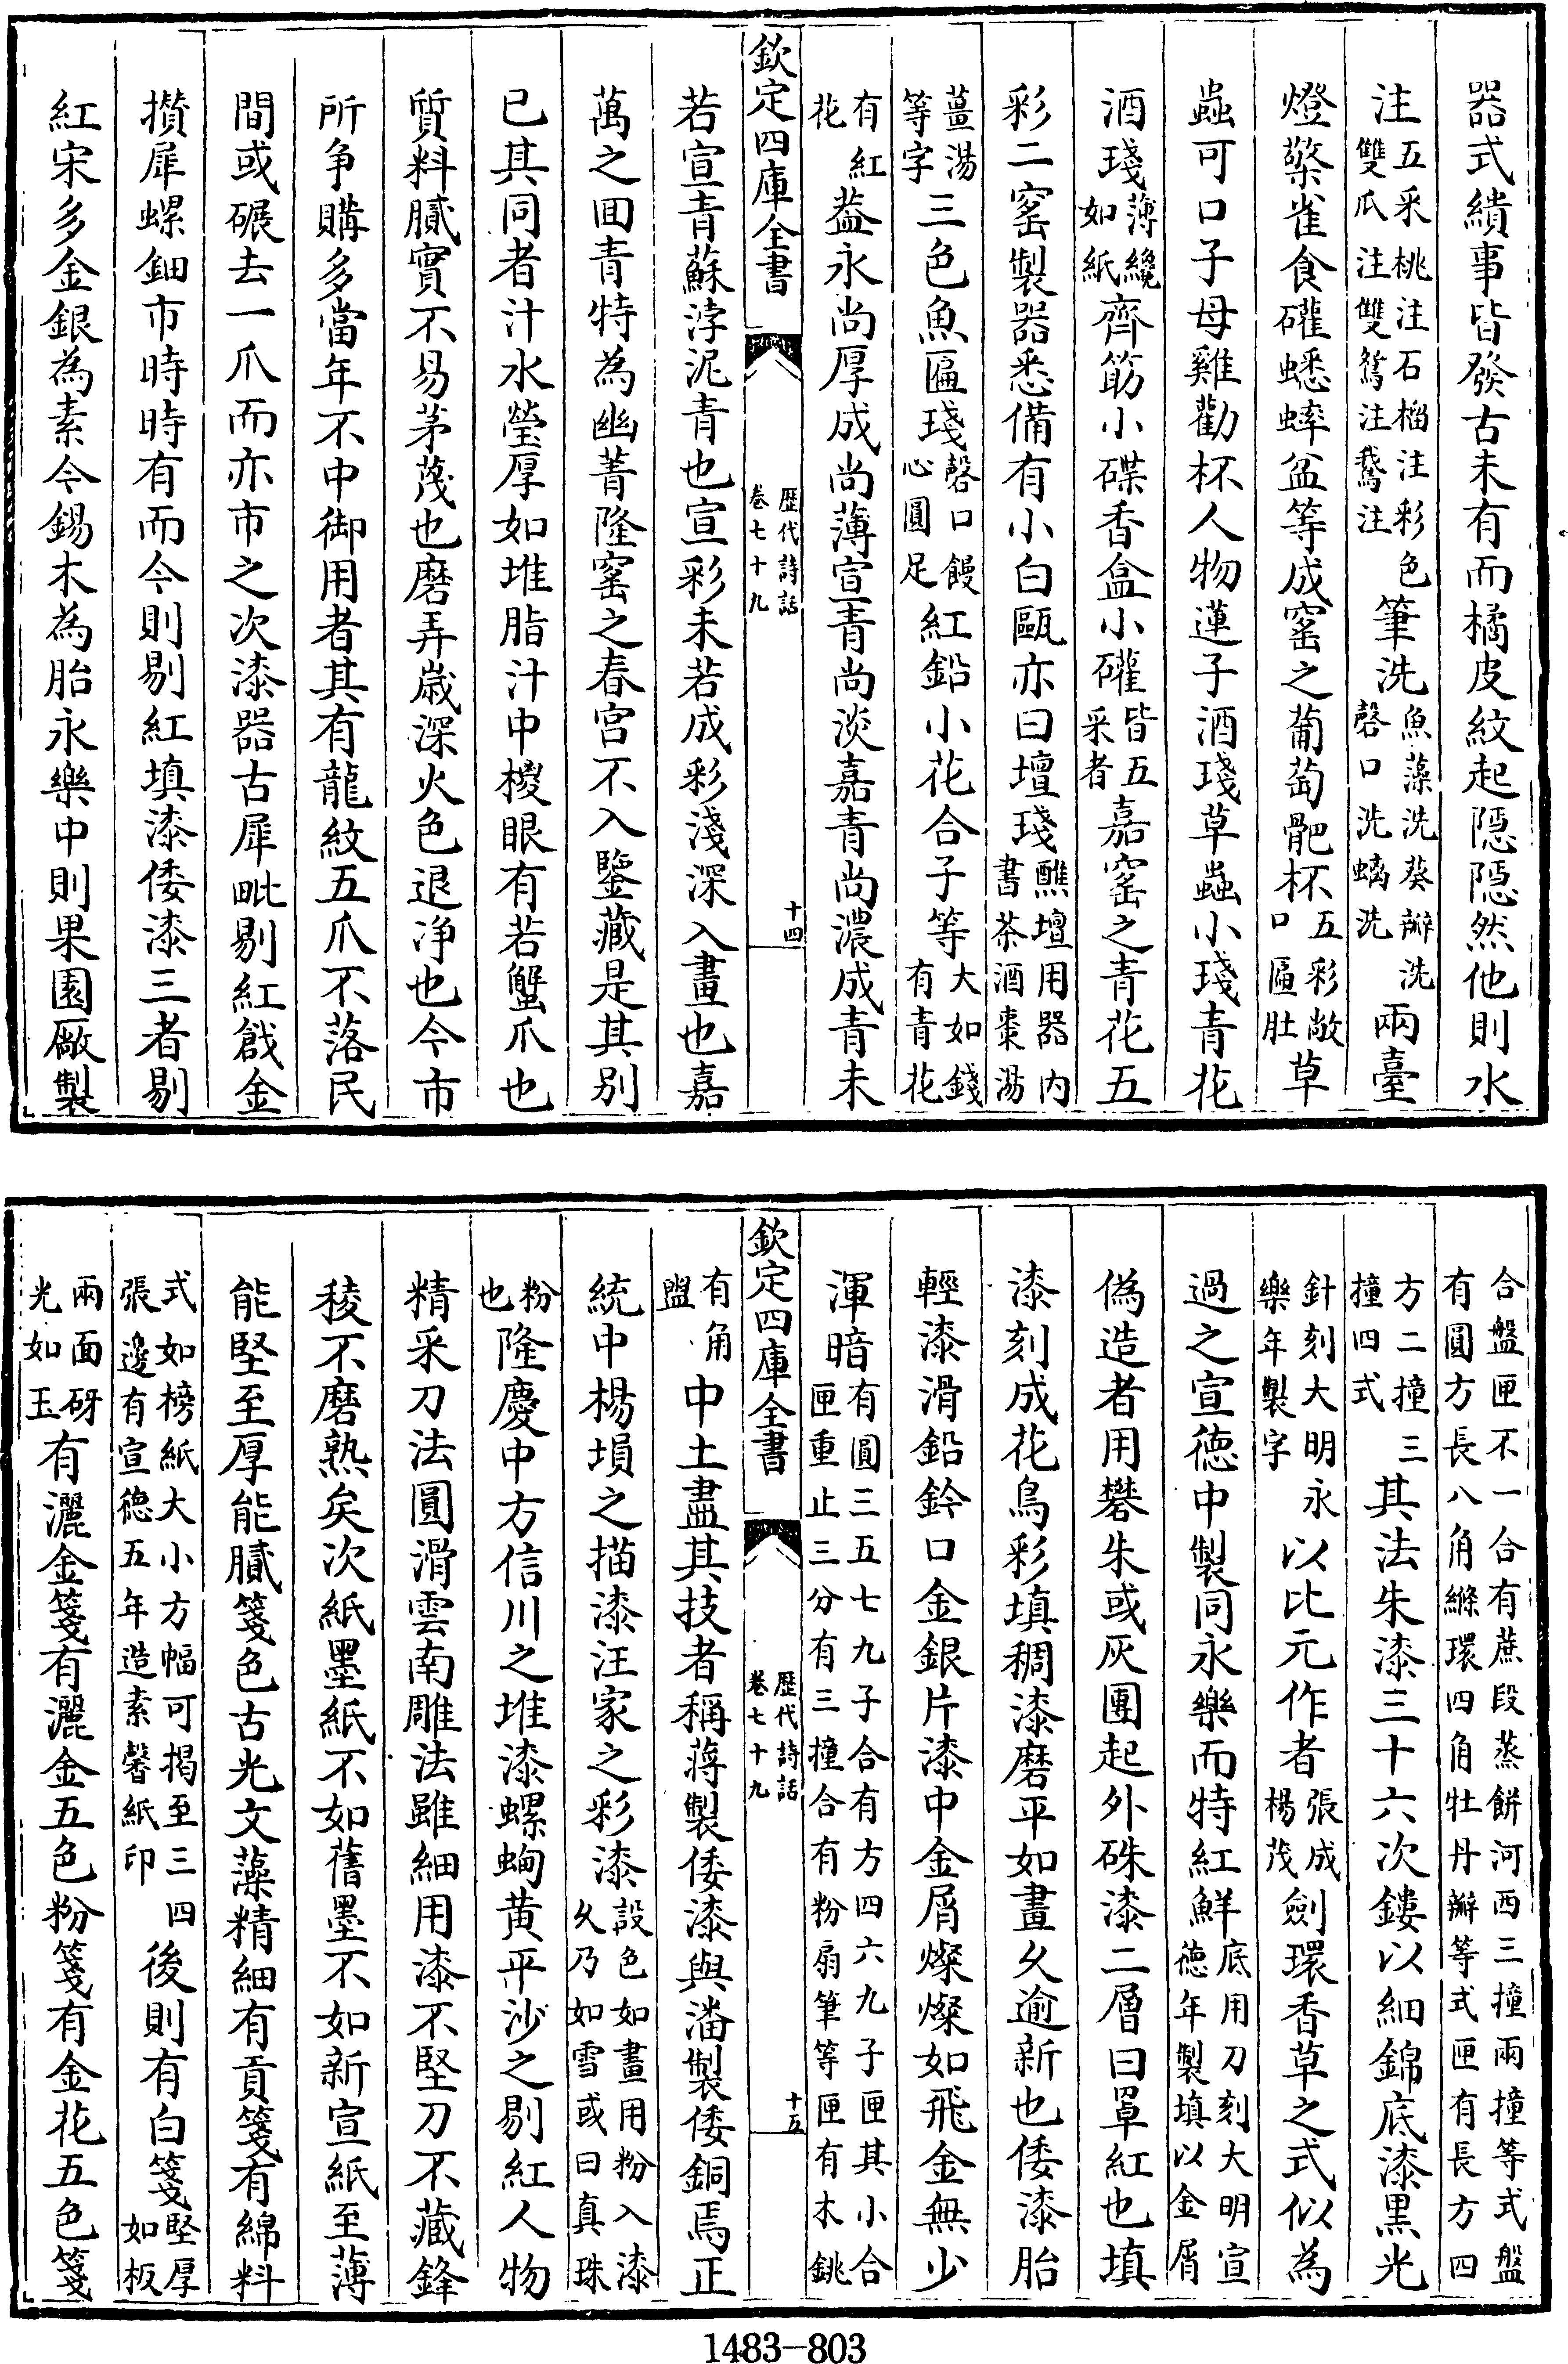 器式績事皆發古未有而橘皮紋起隱隱然他則水
注五采桃注石榴注彩色雙瓜注雙鴛注鵞注筆洗魚藻洗葵瓣洗磬口洗螭洗兩臺
燈檠雀食礶蟋蟀盆等成窑之葡萄䶕杯五彩敞口匾肚草
蟲可口子母雞勸杯人物蓮子酒琖草蟲小琖青花
酒琖薄纔如紙齊筯小碟香盒小礶皆五采者嘉窑之青花五
彩二窑製器悉備有小白甌亦曰壇琖醮壇用器内書茶酒棗湯
薑湯等字三色魚匾琖磬口饅心圓足紅鉛小花合子等大如錢有青花
有紅花葢永尚厚成尚薄宣青尚淡嘉青尚濃成青未
欽定四庫全書
歴代詩話
卷七十九
十四
若宣青蘇浡泥青也宣彩未若成彩淺深入畫也嘉
萬之囬青特為幽菁隆窑之春宫不入鑒藏是其别
已其同者汁水瑩厚如堆脂汁中椶眼有若蟹爪也
質料膩實不易茅蔑也磨弄歲深火色退浄也今市
所争購多當年不中御用者其有龍紋五爪不落民
間或碾去一爪而亦市之次漆器古犀毗剔紅戧金
攅犀螺鈿市時時有而今則剔紅填漆倭漆三者剔
紅宋多金銀為素今錫木為胎永樂中則果園厰製
合盤匣不一合有蔗段蒸餅河西三撞兩撞等式盤有圓方長八角縧環四角牡丹瓣等式匣有長方四
方二撞三撞四式其法朱漆三十六次鏤以細錦底漆黒光
針刻大明永樂年製字以比元作者張成楊茂劍環香草之式似為
過之宣徳中製同永樂而特紅鮮底用刀刻大明宣徳年製填以金屑
偽造者用礬朱或灰團起外硃漆二層曰罩紅也填
漆刻成花鳥彩填稠漆磨平如畫久逾新也倭漆胎
輕漆滑鉛鈐口金銀片漆中金屑燦燦如飛金無少
渾暗有圓三五七九子合有方四六九子匣其小合匣重止三分有三撞合有粉扇筆等匣有木銚
欽定四庫全書
歴代詩話
卷七十九
十五
有角盥中土盡其技者稱蔣製倭漆與潘製倭銅焉正
統中楊塤之描漆汪家之彩漆設色如畫用粉入漆久乃如雪或曰真珠
粉也隆慶中方信川之堆漆螺蜔黄平沙之剔紅人物
精采刀法圓滑雲南雕法雖細用漆不堅刀不藏鋒
稜不磨熟矣次紙墨紙不如舊墨不如新宣紙至薄
能堅至厚能膩箋色古光文藻精細有貢箋有綿料
式如榜紙大小方幅可揭至三四張邊有宣徳五年造素馨紙印後則有白箋堅厚如板
兩面砑光如玉有灑金箋有灑金五色粉箋有金花五色箋
1483-803